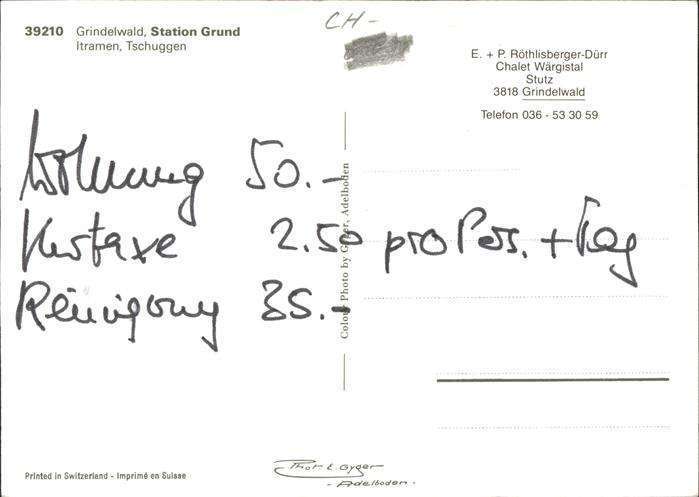 CH-
39210 Grindelwald, Station Grund
Itramen, Tschuggen
E. + P. Röthlisberger-Dürr
Chalet Wärgistal
Stutz
3818 Grindelwald
Telefon 036 - 53 30 59
Wohnung 50.-
Kurtaxe 2.50 pro Pers. + Tag
Reinigung 35.-
Colour Photo by Gyger, Adelboden
Printed in Switzerland - Imprimé en Suisse
Phot E. Gyger
- Adelboden -